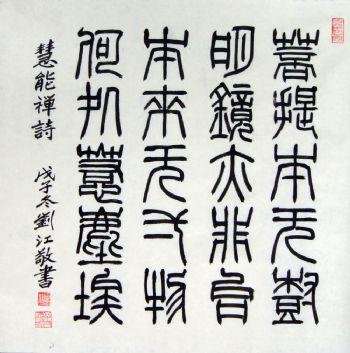 菩提本无樹
明鏡亦非台
本來无一物
何処惹塵埃
慧能禅詩 戊子冬劉江敬書